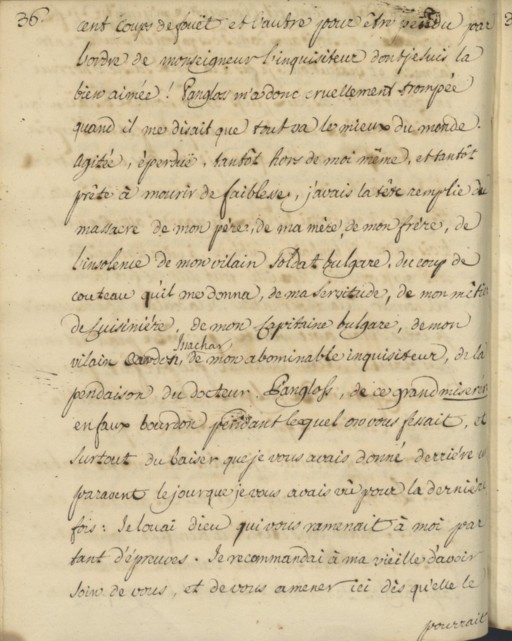 36
cent coups de fouët et l'autre pour être pendu par
l'ordre de monseigneur l'inquisiteur dont je suis la
bien aimée ! Panglos m'a donc cruellement trompée
quand il me disait que tout va le mieux du monde.
agitée, éperduë, tantôt hors de moi même, et tantôt
prête à mourir de faiblesse, j'avais la tête remplie du
massacre de mon père, de ma mère, de mon frère, de
l'insolence de mon vilain soldat bulgare, du coup de
couteau qu'il me donna, de ma servitude, de mon métier
de Cuisinière, de mon Capitaine bulgare, de mon
Issachar
vilain de mon abominable inquisiteur, de la
pendaison du docteur Pangloss, de ce grand miserere
en faux bourdon pendant lequel on vous fessait, et
surtout du baiser que je vous avais donné derrière un
paravent le jour que je vous avais vû pour la dernière
fois : Je louai dieu qui vous ramenait à moi par
tant d'épreuves. Je recommandai à ma vieille d'avoir
soin de vous, et de vous amener ici dès qu'elle le
pourrait